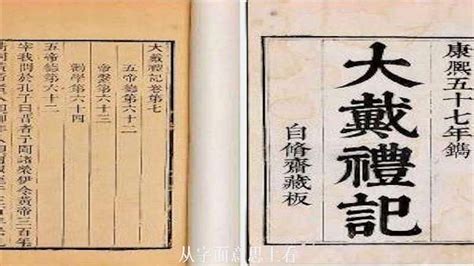 康熙五十七年鐫
大戴禮記
自脩齋藏板
大戴禮記卷第七
五帝德第六十二
帝繫第六十三
勸學第六十四
五帝德第六十二
宰我問於孔子曰昔者予聞諸榮伊令黃帝三百年
从字面意思上看